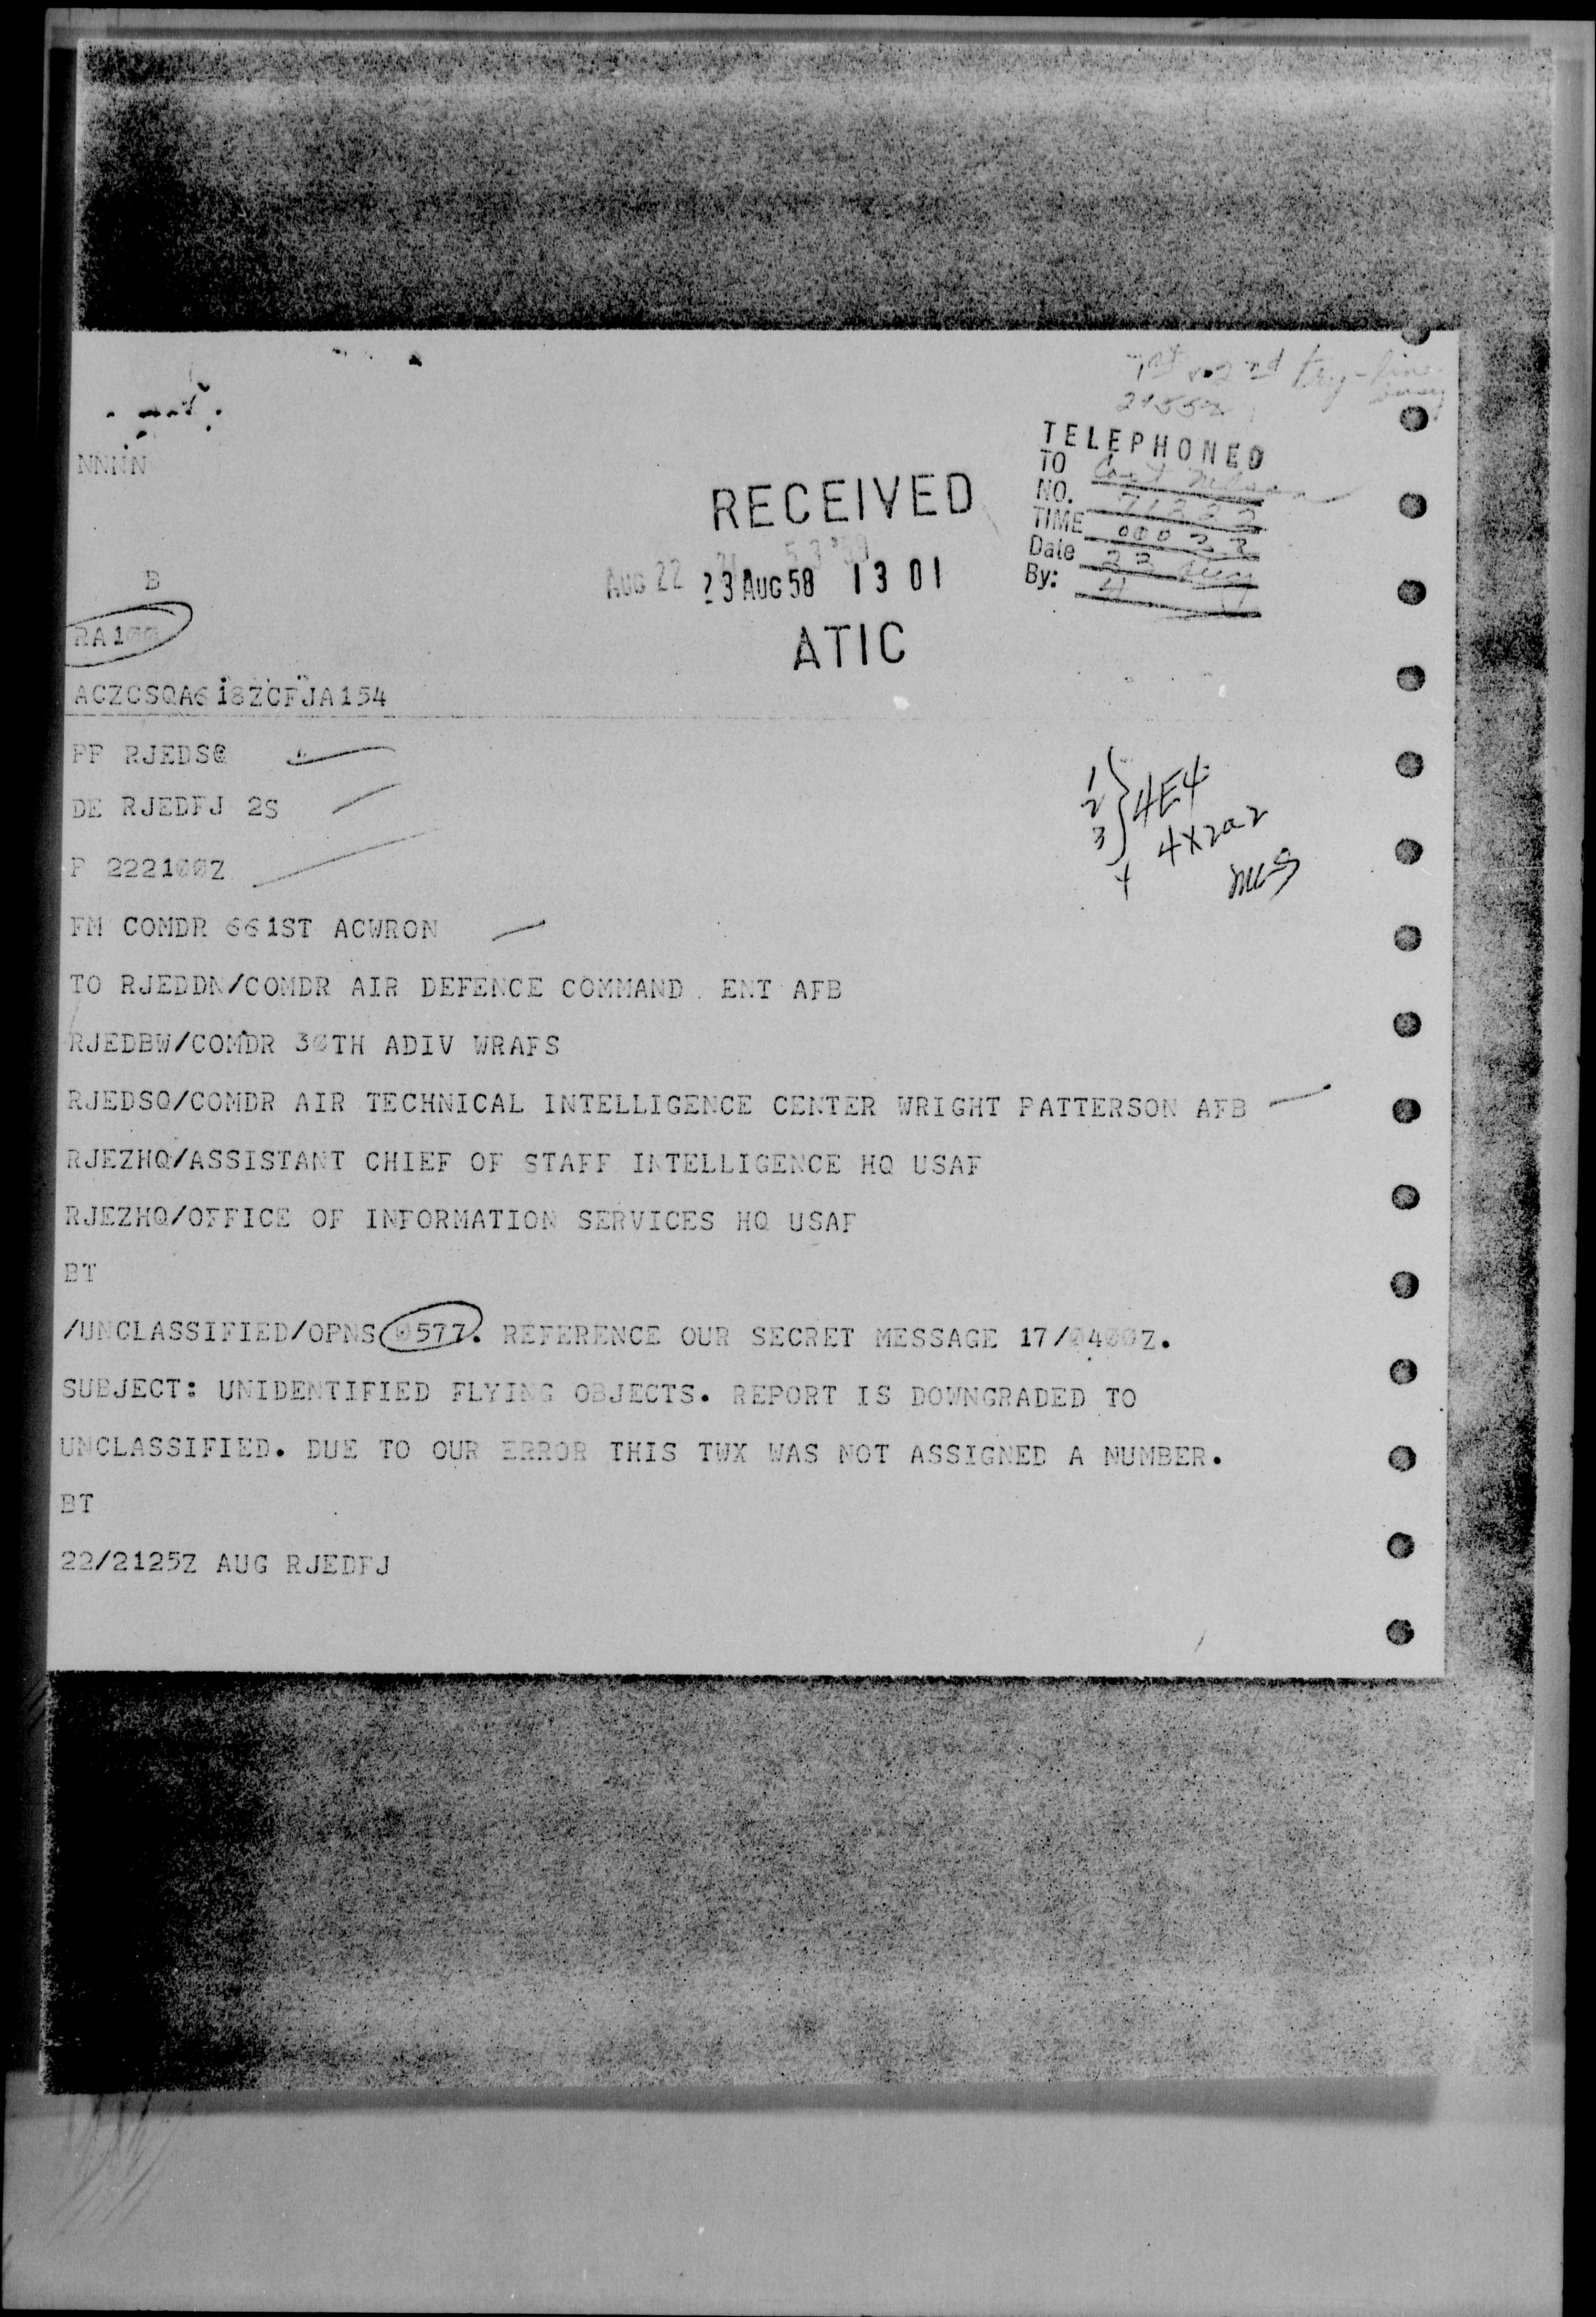 1st & 2nd try - line
busy
2155Z
TELEPHONED
TO Capt Nelson
NO. 71222
TIME
Date 23 Aug
By:
NNNN
RECEIVED
AUG 22
23 AUG 58 13 01
ATIC
B
RA100
ACZCSQA618ZCFJA154
PP RJEDSQ
DE RJEDFJ 2S
P 222100Z
1
2
3 } 4E4
4 4X2a2
FM COMDR 661ST ACWRON
TO RJEDDN/COMDR AIR DEFENCE COMMAND ENT AFB
RJEDBW/COMDR 30TH ADIV WRAFS
RJEDSQ/COMDR AIR TECHNICAL INTELLIGENCE CENTER WRIGHT PATTERSON AFB
RJEZHQ/ASSISTANT CHIEF OF STAFF INTELLIGENCE HQ USAF
RJEZHQ/OFFICE OF INFORMATION SERVICES HQ USAF
BT
/UNCLASSIFIED/OPNS 0577. REFERENCE OUR SECRET MESSAGE 17/0400Z.
SUBJECT: UNIDENTIFIED FLYING OBJECTS. REPORT IS DOWNGRADED TO
UNCLASSIFIED. DUE TO OUR ERROR THIS TWX WAS NOT ASSIGNED A NUMBER.
BT
22/2125Z AUG RJEDFJ